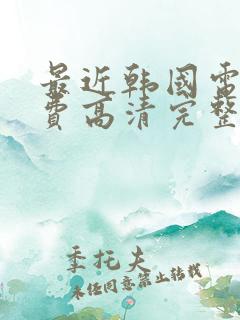 最近韩国電
費高清完整
季托夫
未经同意禁止转载